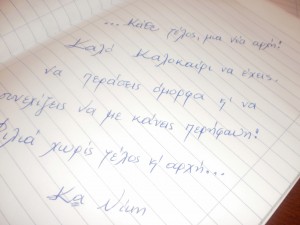 ...Κάθε τέλος, μια νέα αρχή!
Καλό Καλοκαίρι να έχεις,
να περάσεις όμορφα κ' να
συνεχίζεις να με κάνεις περήφανη!
Φιλιά χωρίς τέλος κ' αρχή...
Κα Νίκη